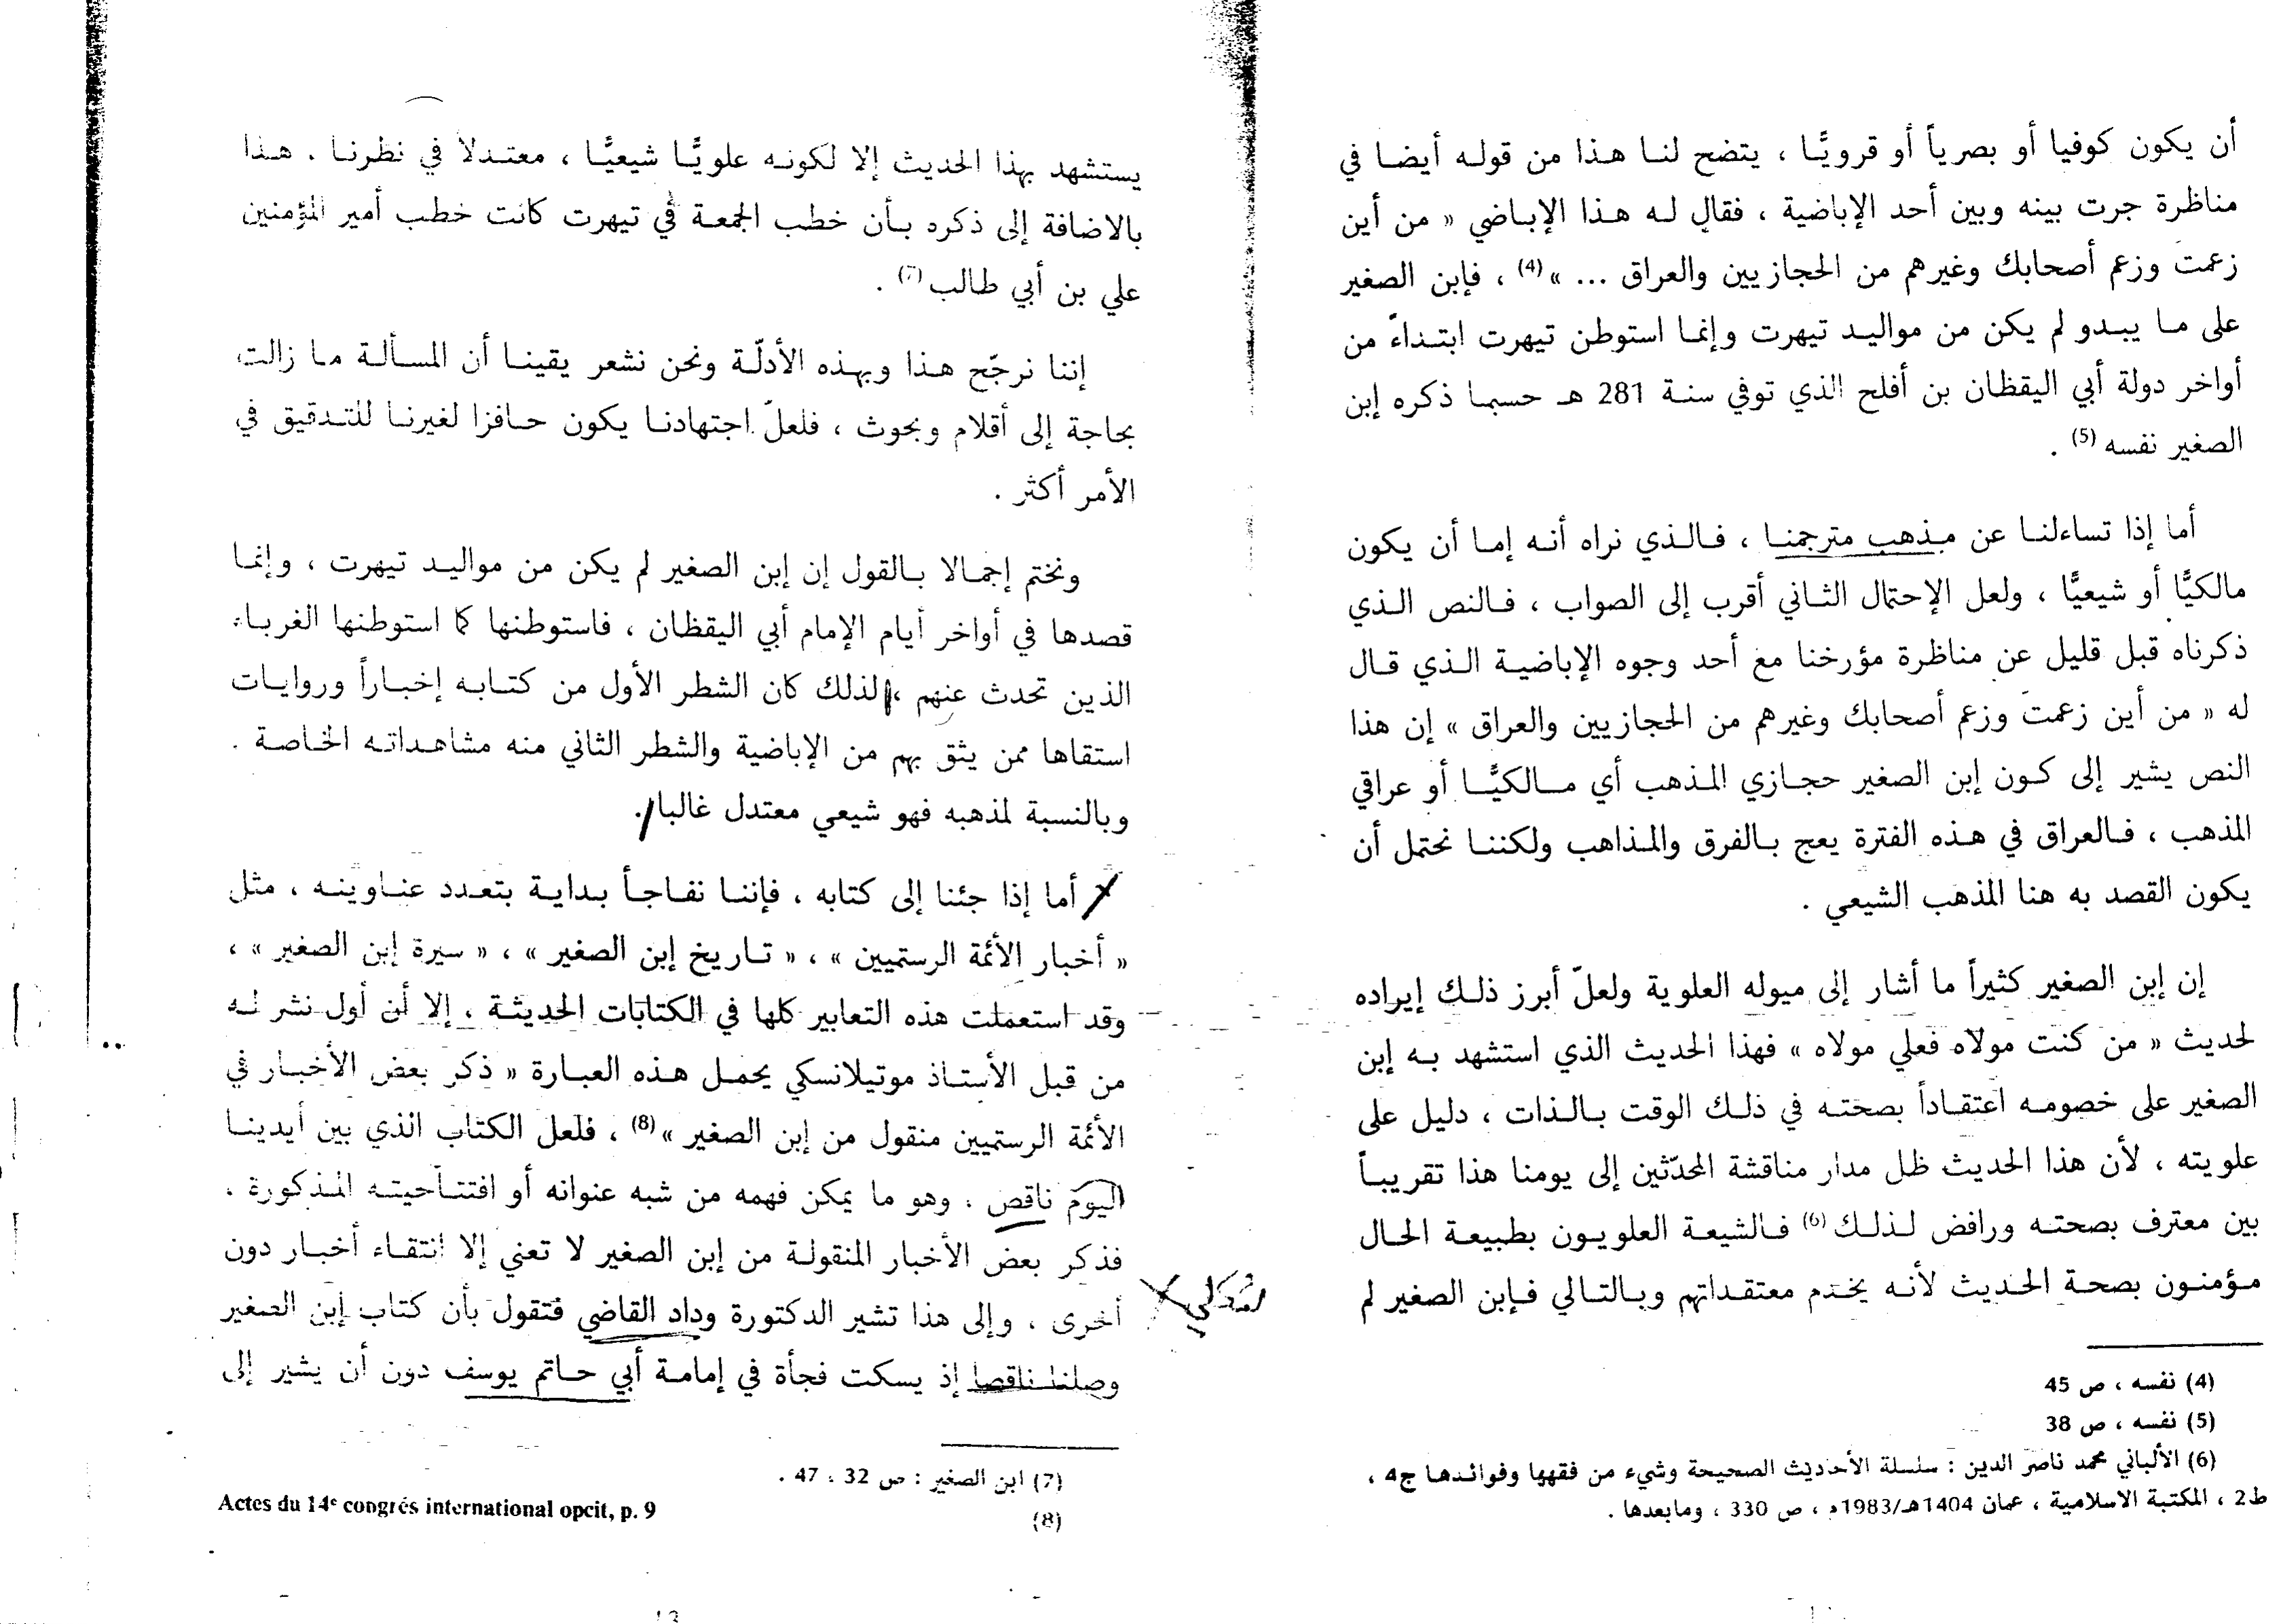 أن يكون كوفيا أو بصرياً أو قرويًّا ، يتضح لنا هذا من قوله أيضا في
مناظرة جرت بينه وبين أحد الإباضية ، فقال له هذا الإباضي « من أين
زعمت وزعم أصحابك وغيرهم من الحجازيين والعراق ... » (4) ، فإبن الصغير
على ما يبدو لم يكن من مواليد تيهرت وإنما استوطن تيهرت ابتداءً من
أواخر دولة أبي اليقظان بن أفلح الذي توفي سنة 281 هـ حسبما ذكره إبن
الصغير نفسه (5) .
أما إذا تساءلنا عن مذهب مترجمنا ، فالذي نراه أنه إما أن يكون
مالكيًّا أو شيعيًّا ، ولعل الإحتال الثاني أقرب إلى الصواب ، فالنص الذي
ذكرناه قبل قليل عن مناظرة مؤرخنا مع أحد وجوه الإباضية الذي قال
له « من أين زعمت وزعم أصحابك وغيرهم من الحجازيين والعراق » إن هذا
النص يشير إلى كون إبن الصغير حجازي المذهب أي مالكيًّا أو عراقي
المذهب ، فالعراق في هذه الفترة يعج بالفرق والمذاهب ولكننا نحتمل أن
يكون القصد به هنا المذهب الشيعي .
إن إبن الصغير كثيراً ما أشار إلى ميوله العلوية ولعلّ أبرز ذلك إيراده
لحديث « من كنت مولاه فعلي مولاه » فهذا الحديث الذي استشهد به إبن
الصغير على خصومه اعتقاداً بصحته في ذلك الوقت بالذات ، دليل على
علويته ، لأن هذا الحديث ظل مدار مناقشة المحدّثين إلى يومنا هذا تقريباً
بين معترف بصحته ورافض لذلك (6) فالشيعة العلويون بطبيعة الحال
مؤمنون بصحة الحديث لأنه يخدم معتقداتهم وبالتالي فإبن الصغير لم
(4) نفسه ، ص 45
(5) نفسه ، ص 38
(6) الألباني محمد ناصر الدين : سلسلة الأحاديث الصحيحة وشيء من فقهها وفوائدها ج4 ،
ط2 ، المكتبة الاسلامية ، عمان 1404هـ/1983م ، ص 330 ، ومابعدها .
يستشهد بهذا الحديث إلا لكونه علويًّا شيعيًّا ، معتدلا في نظرنا . هذا
بالاضافة إلى ذكره بأن خطب الجمعة في تيهرت كانت خطب أمير المؤمنين
علي بن أبي طالب (7) .
إننا نرجّح هذا وبهذه الأدلّة ونحن نشعر يقينا أن المسألة ما زالت
بحاجة إلى أقلام وبحوث ، فلعلّ اجتهادنا يكون حافزا لغيرنا للتدقيق في
الأمر أكثر .
ونختم إجمالا بالقول إن إبن الصغير لم يكن من مواليد تيهرت ، وإنما
قصدها في أواخر أيام الإمام أبي اليقظان ، فاستوطنها كما استوطنها الغرباء
الذين تحدث عنهم ، لذلك كان الشطر الأول من كتابه إخباراً وروايات
استقاها ممن يثق بهم من الإباضية والشطر الثاني منه مشاهداته الخاصة .
وبالنسبة لمذهبه فهو شيعي معتدل غالبا .
أما إذا جئنا إلى كتابه ، فإننا نفاجأ بداية بتعدد عناوينه ، مثل
« أخبار الأئمة الرستميين » ، « تاريخ إبن الصغير » ، « سيرة إبن الصغير » ،
وقد استعملت هذه التعابير كلها في الكتابات الحديثة ، إلا أن أول نشر له
من قبل الأستاذ موتيلانسكي يحمل هذه العبارة « ذكر بعض الأخبار في
الأئمة الرستميين منقول من إبن الصغير » (8) ، فلعل الكتاب الذي بين أيدينا
اليوم ناقص ، وهو ما يمكن فهمه من شبه عنوانه أو افتتاحيته المذكورة ،
فذكر بعض الأخبار المنقولة من إبن الصغير لا تعني إلا انتقاء أخبار دون
أخرى ، وإلى هذا تشير الدكتورة وداد القاضي فتقول بأن كتاب إبن الصغير
وصلنا ناقصا إذ يسكت فجأة في إمامة أبي حاتم يوسف دون أن يشير إلى
(7) ابن الصغير : ص 32 ، 47 .
(8) Actes du 14e congrés international opcit, p. 9
13